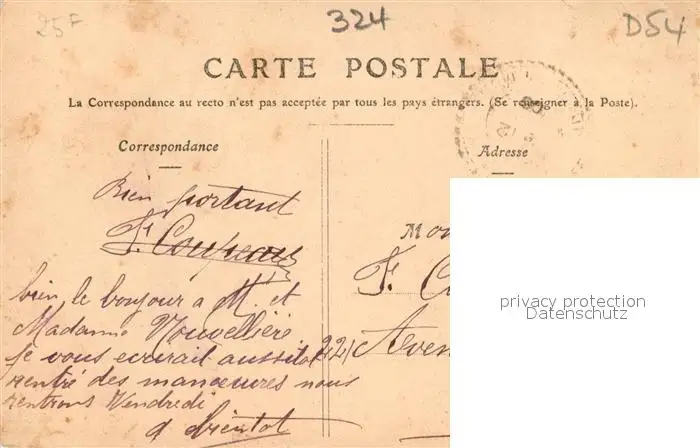 25F
324
D54
CARTE POSTALE
La Correspondance au recto n'est pas acceptée par tous les pays étrangers. (Se renseigner à la Poste).
Correspondance
Adresse
Bien portant
F.
bien le bonjour a M. et
Madame Nouvellière
Je vous ecrirait aussitot
rentré des manœuvres nous
rentrons Vendredi
a bientot
Mon
F. C
Aven
privacy protection
Datenschutz